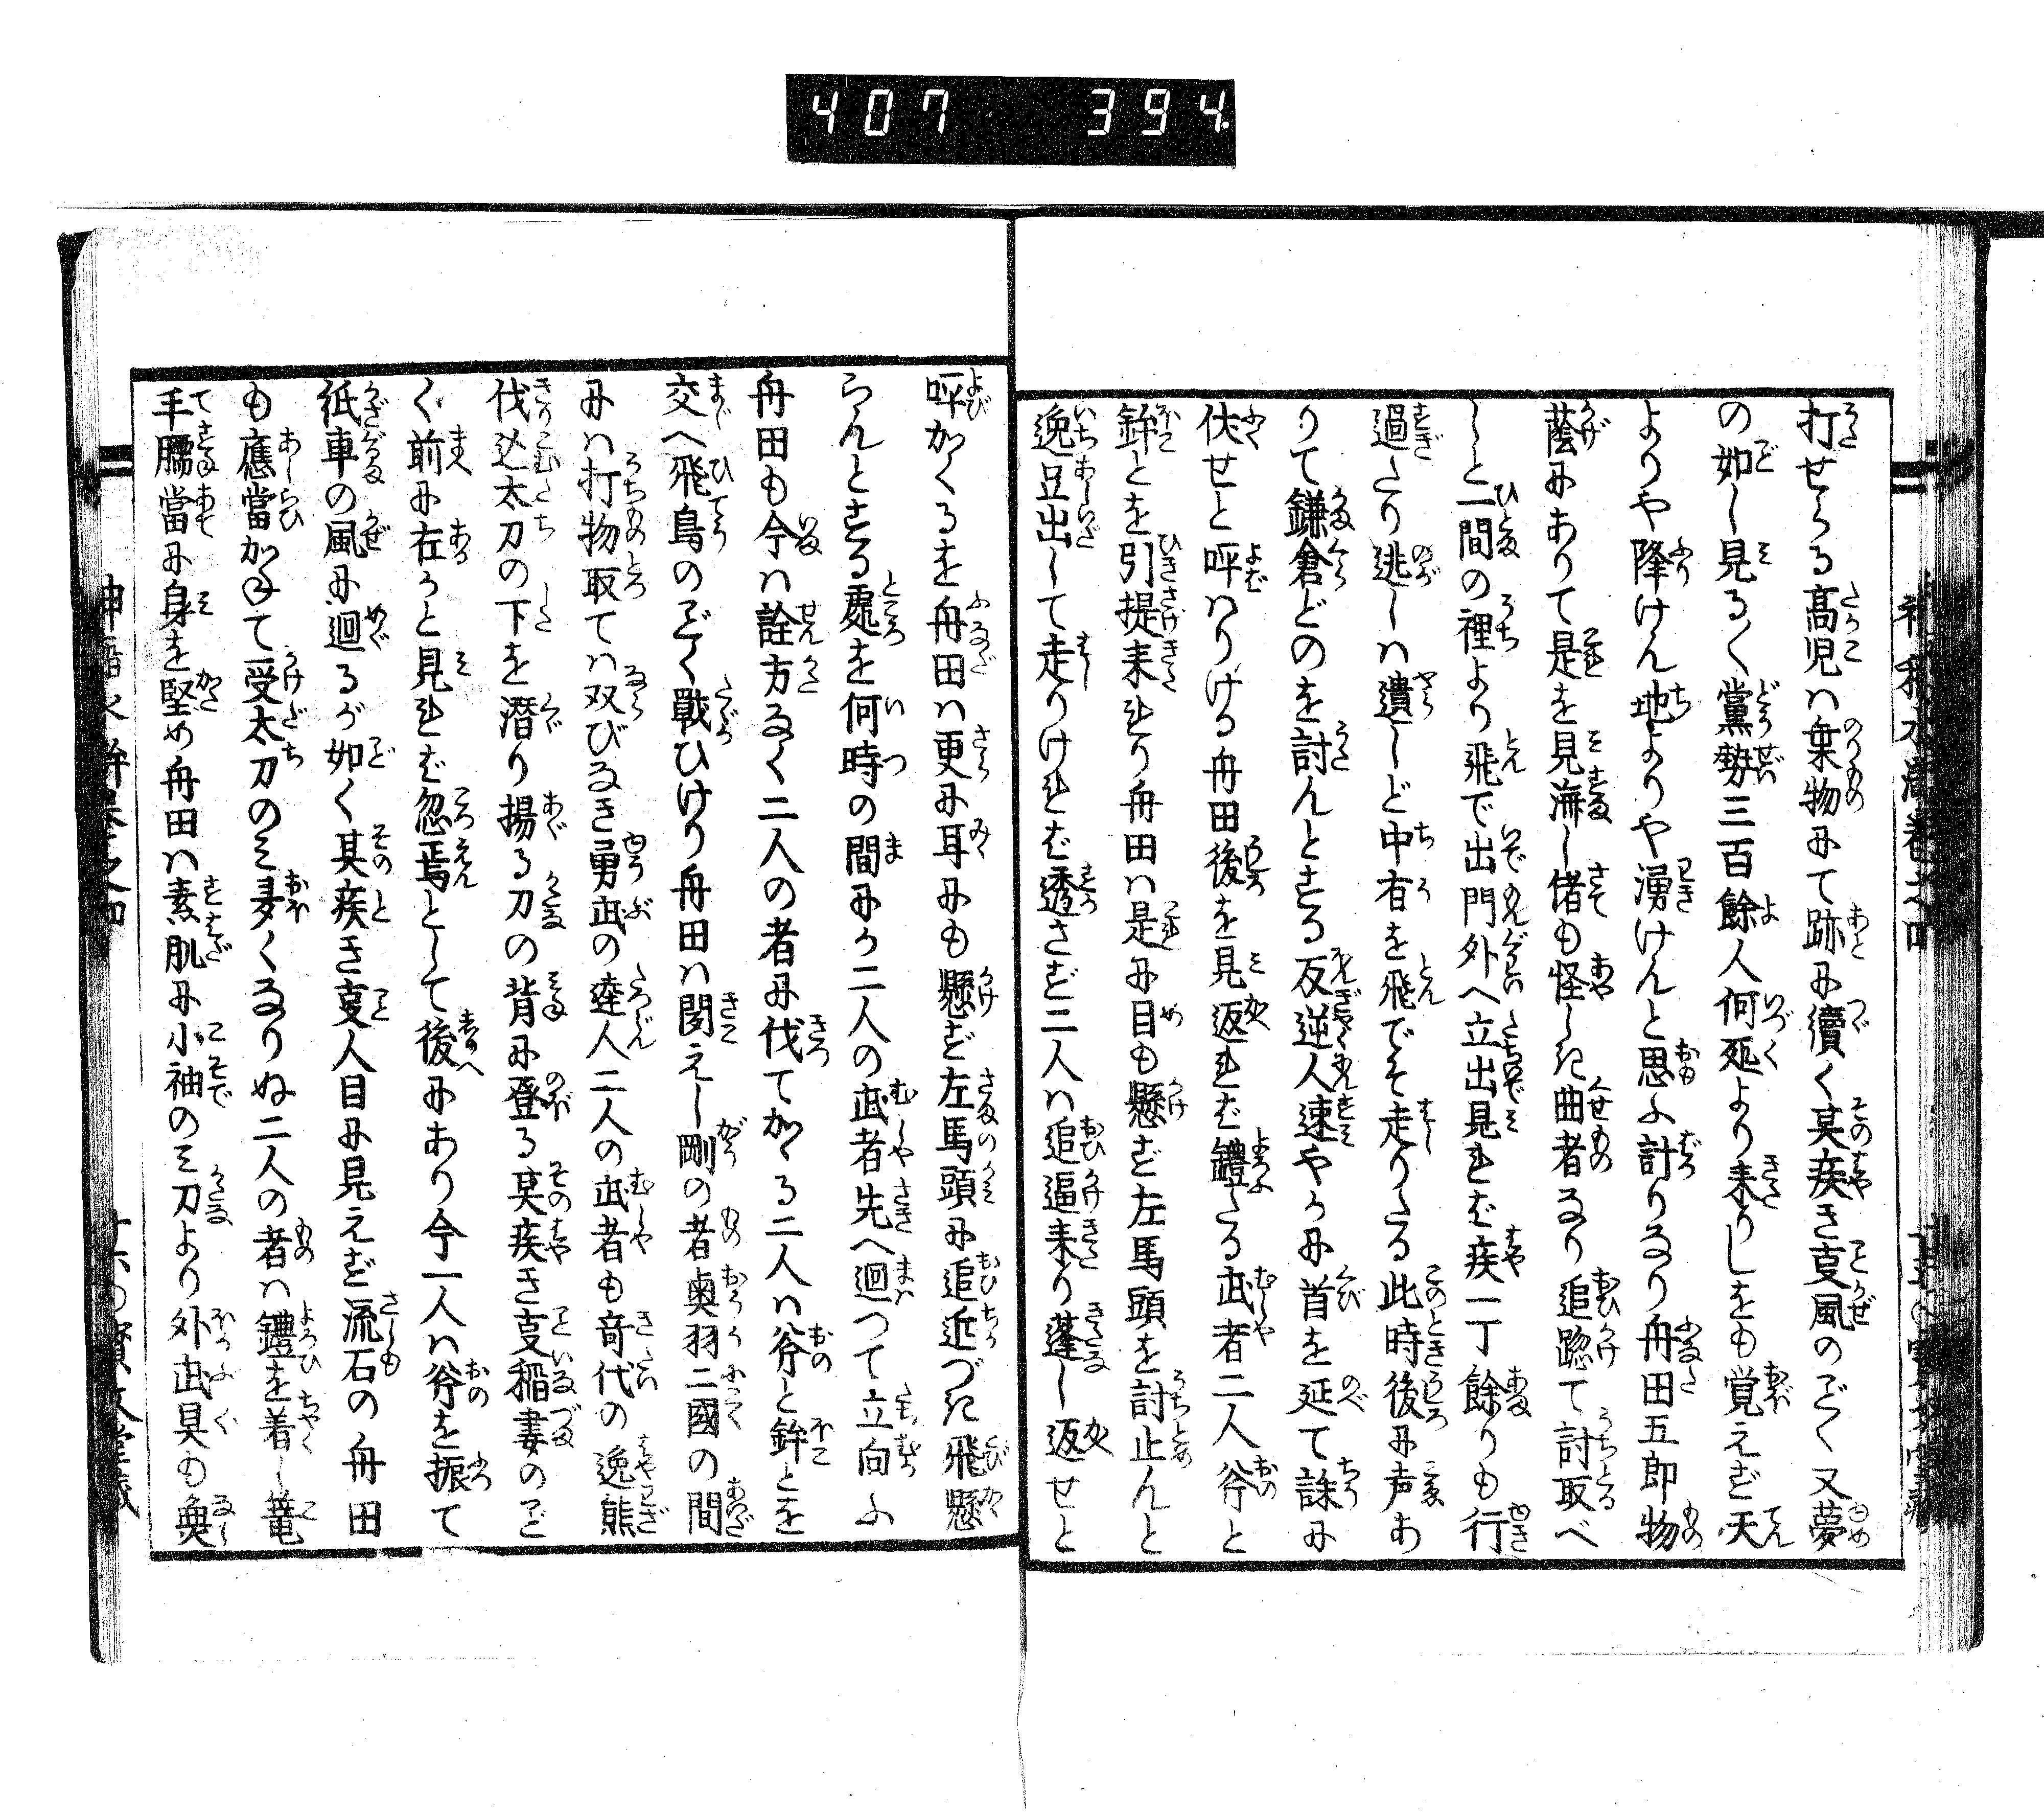 407 394.
打せらる高児ハ乗物にて跡に續く其疾き叓風のごく又夢
の如し見るく黨勢三百餘人何処より来りしをも覚えず天
よりや降けん地よりや湧けんと思ふ計りなり舟田五郎物
蔭にありて是を見済し偖も怪しき曲者なり追踪て討取べ
しと一間の裡より飛で出門外へ立出見れば疾一丁餘りも行
過たり逃しハ遺しど中有を飛でぞ走りたる此時後に声あ
りて鎌倉どのを討んとする反逆人速やかに首を延て誅に
伏せと呼ハりける舟田後を見返れば鎧たる武者二人斧と
鉾とを引提来れり舟田ハ是に目も懸ず左馬頭を討止んと
逸足出して走りけれど透さず二人ハ追逼来り蓬し返せと
呼かくるを舟田ハ更に耳にも懸ず左馬頭に追近づき飛懸
らんとする處を何時の間にか二人の武者先へ廻つて立向ふ
舟田も今ハ詮方なく二人の者に伐てかくる二人ハ斧と鉾とを
交へ飛鳥のごく戰ひけり舟田ハ聞えし剛の者奥羽二國の間
にハ打物取てハ双びなき勇武の達人二人の武者も竒代の逸熊
伐込太刀の下を潜り揚る刀の背に登る其疾き叓稲妻のご
く前に在かと見れば忽焉として後にあり今一人ハ斧を振て
紙車の風に廻るが如く其疾き叓人目に見えず流石の舟田
も應當かねて受太刀のミ多くなりぬ二人の者ハ鎧を着し篭
手臑當に身を堅め舟田ハ素肌に小袖のミ刀より外武具も無